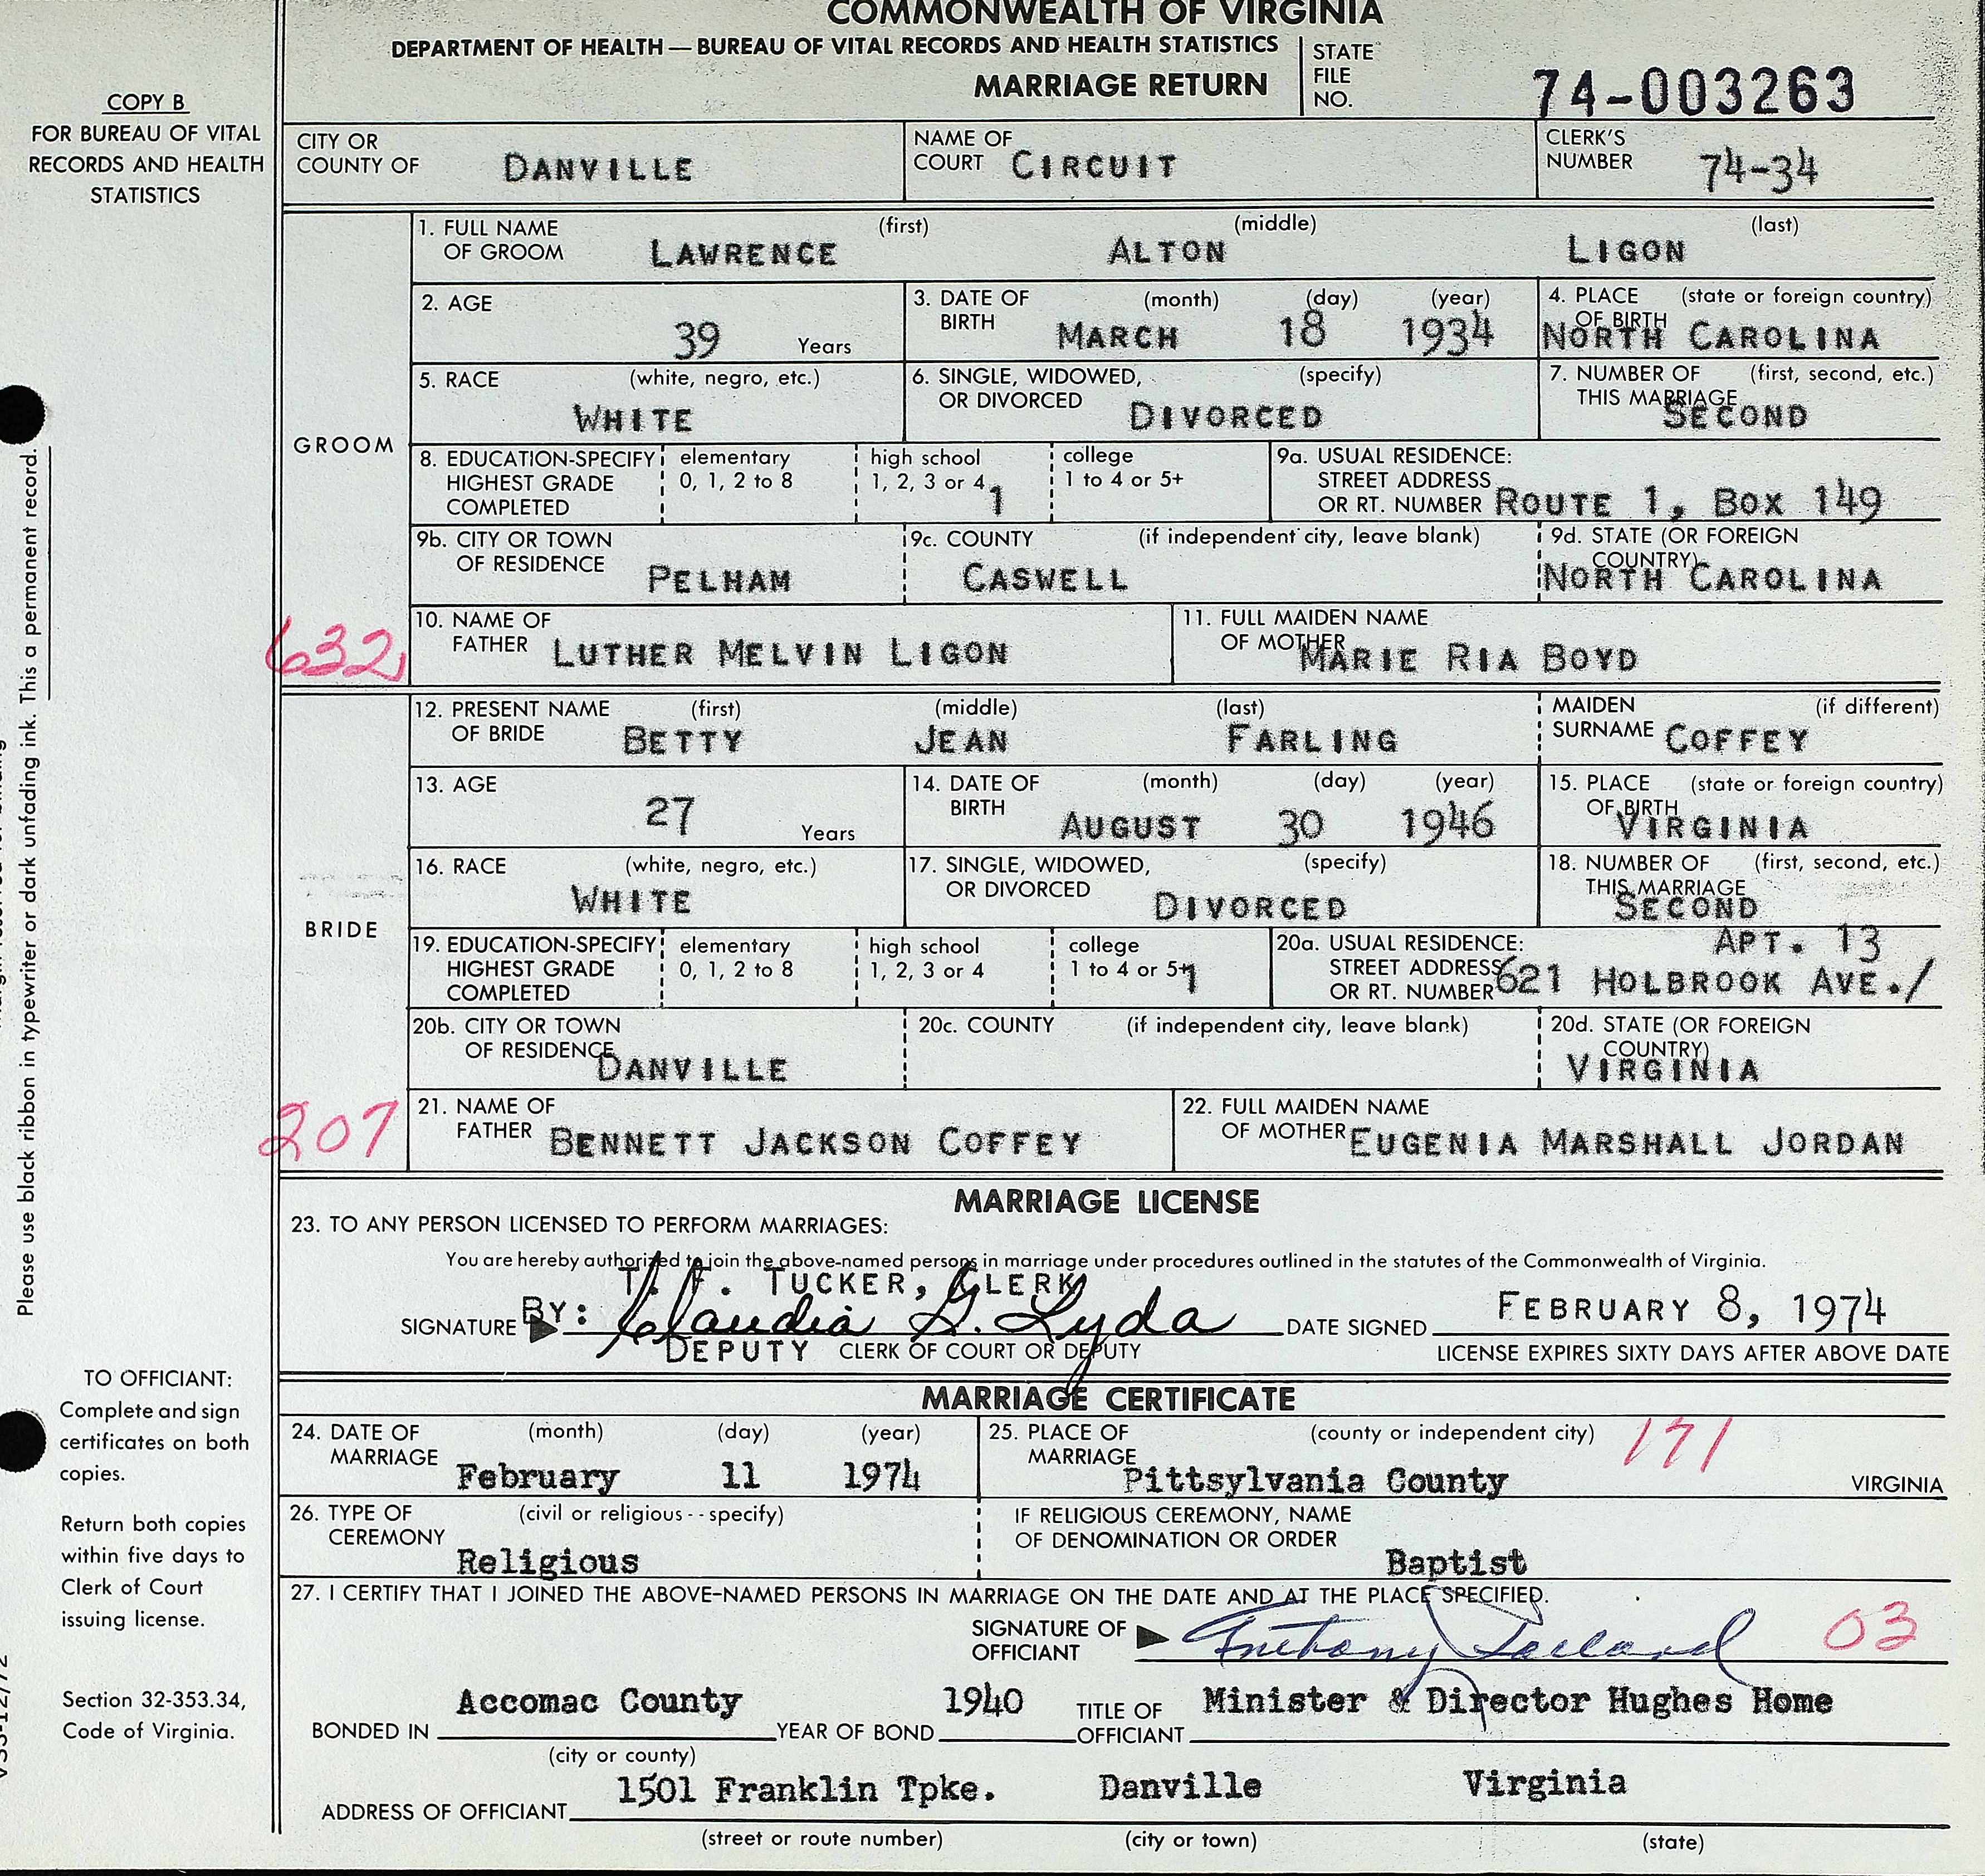 COMMONWEALTH OF VIRGINIA
DEPARTMENT OF HEALTH — BUREAU OF VITAL RECORDS AND HEALTH STATISTICS
MARRIAGE RETURN
STATE FILE NO. 74-003263
COPY B
FOR BUREAU OF VITAL
RECORDS AND HEALTH
STATISTICS
CITY OR COUNTY OF DANVILLE
NAME OF COURT CIRCUIT
CLERK'S NUMBER 74-34
GROOM
1. FULL NAME OF GROOM (first) LAWRENCE (middle) ALTON (last) LIGON
2. AGE 39 Years
3. DATE OF BIRTH (month) MARCH (day) 18 (year) 1934
4. PLACE OF BIRTH (state or foreign country) NORTH CAROLINA
5. RACE (white, negro, etc.) WHITE
6. SINGLE, WIDOWED, OR DIVORCED (specify) DIVORCED
7. NUMBER OF THIS MARRIAGE (first, second, etc.) SECOND
8. EDUCATION-SPECIFY HIGHEST GRADE COMPLETED
elementary 0, 1, 2 to 8
high school 1, 2, 3 or 4 1
college 1 to 4 or 5+
9a. USUAL RESIDENCE: STREET ADDRESS OR RT. NUMBER ROUTE 1, BOX 149
9b. CITY OR TOWN OF RESIDENCE PELHAM
9c. COUNTY (if independent city, leave blank) CASWELL
9d. STATE (OR FOREIGN COUNTRY) NORTH CAROLINA
632
10. NAME OF FATHER LUTHER MELVIN LIGON
11. FULL MAIDEN NAME OF MOTHER MARIE RIA BOYD
BRIDE
12. PRESENT NAME OF BRIDE (first) BETTY (middle) JEAN (last) FARLING
MAIDEN SURNAME (if different) COFFEY
13. AGE 27 Years
14. DATE OF BIRTH (month) AUGUST (day) 30 (year) 1946
15. PLACE OF BIRTH (state or foreign country) VIRGINIA
16. RACE (white, negro, etc.) WHITE
17. SINGLE, WIDOWED, OR DIVORCED (specify) DIVORCED
18. NUMBER OF THIS MARRIAGE (first, second, etc.) SECOND
19. EDUCATION-SPECIFY HIGHEST GRADE COMPLETED
elementary 0, 1, 2 to 8
high school 1, 2, 3 or 4
college 1 to 4 or 5+ 1
20a. USUAL RESIDENCE: STREET ADDRESS OR RT. NUMBER 621 HOLBROOK AVE./ APT. 13
20b. CITY OR TOWN OF RESIDENCE DANVILLE
20c. COUNTY (if independent city, leave blank)
20d. STATE (OR FOREIGN COUNTRY) VIRGINIA
207
21. NAME OF FATHER BENNETT JACKSON COFFEY
22. FULL MAIDEN NAME OF MOTHER EUGENIA MARSHALL JORDAN
MARRIAGE LICENSE
23. TO ANY PERSON LICENSED TO PERFORM MARRIAGES:
You are hereby authorized to join the above-named persons in marriage under procedures outlined in the statutes of the Commonwealth of Virginia.
TUCKER, CLERK
SIGNATURE BY: Claudia G. Lyda DATE SIGNED FEBRUARY 8, 1974
DEPUTY CLERK OF COURT OR DEPUTY
LICENSE EXPIRES SIXTY DAYS AFTER ABOVE DATE
MARRIAGE CERTIFICATE
24. DATE OF MARRIAGE (month) February (day) 11 (year) 1974
25. PLACE OF MARRIAGE (county or independent city) 171
Pittsylvania County VIRGINIA
26. TYPE OF CEREMONY (civil or religious - - specify) Religious
IF RELIGIOUS CEREMONY, NAME OF DENOMINATION OR ORDER Baptist
27. I CERTIFY THAT I JOINED THE ABOVE-NAMED PERSONS IN MARRIAGE ON THE DATE AND AT THE PLACE SPECIFIED.
SIGNATURE OF OFFICIANT Anthony 03
BONDED IN Accomac County (city or county) YEAR OF BOND 1940 TITLE OF OFFICIANT Minister & Director Hughes Home
ADDRESS OF OFFICIANT 1501 Franklin Tpke. Danville Virginia
(street or route number) (city or town) (state)
Please use black ribbon in typewriter or dark unfading ink. This a permanent record.
TO OFFICIANT:
Complete and sign
certificates on both
copies.
Return both copies
within five days to
Clerk of Court
issuing license.
Section 32-353.34,
Code of Virginia.